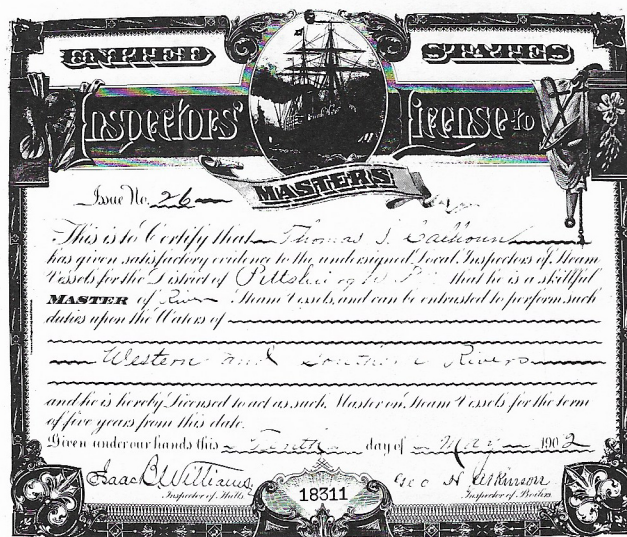 UNITED STATES
Inspectors' License to
MASTERS
Issue No. 26
This is to Certify that Thomas S. Calhoun
has given satisfactory evidence to the undersigned Local Inspectors of Steam
Vessels for the District of Pittsburgh Pa that he is a skillful
MASTER of River Steam Vessels, and can be entrusted to perform such
duties upon the Waters of
Western and Southern Rivers
and he is hereby Licensed to act as such Master on Steam Vessels for the term
of five years from this date.
Given under our hands this Tenth day of May 1902
Isaac B. Williams Geo H Atkinson
Inspector of Hulls Inspector of Boilers
18311